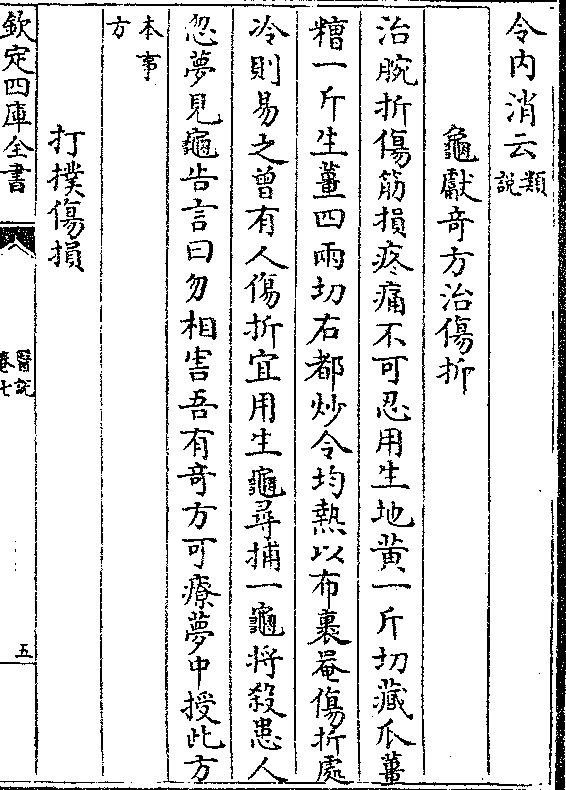 令内消云類説
龜獻竒方治傷折
治腕折傷筋損疼痛不可忍用生地黄一斤切藏瓜薑
糟一斤生薑四兩切右都炒令均熱以布裹罨傷折處
冷則易之曽有人傷折宜用生龜尋捕一龜將殺患人
忽夢見龜告言曰勿相害吾有竒方可療夢中授此方
本事方
打撲傷損
欽定四庫全書
醫説
卷七
五